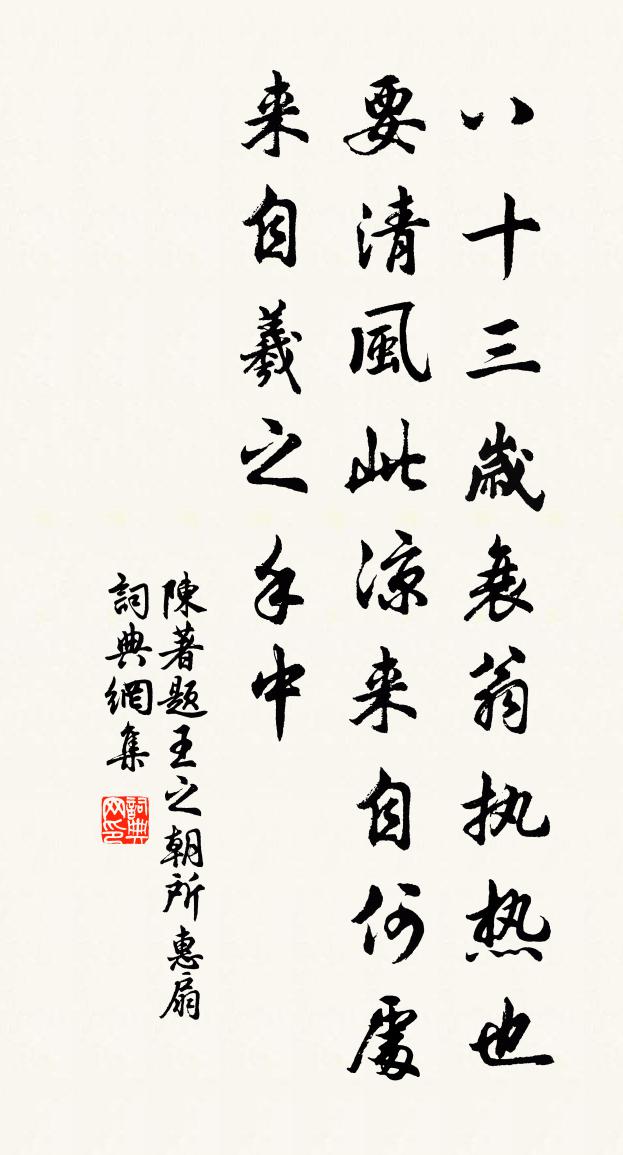 八十三歲衰翁执热也
要清風此凉来自何處
来自羲之手中
陳著题王之朝所惠扇
詞典網集
詞典网印